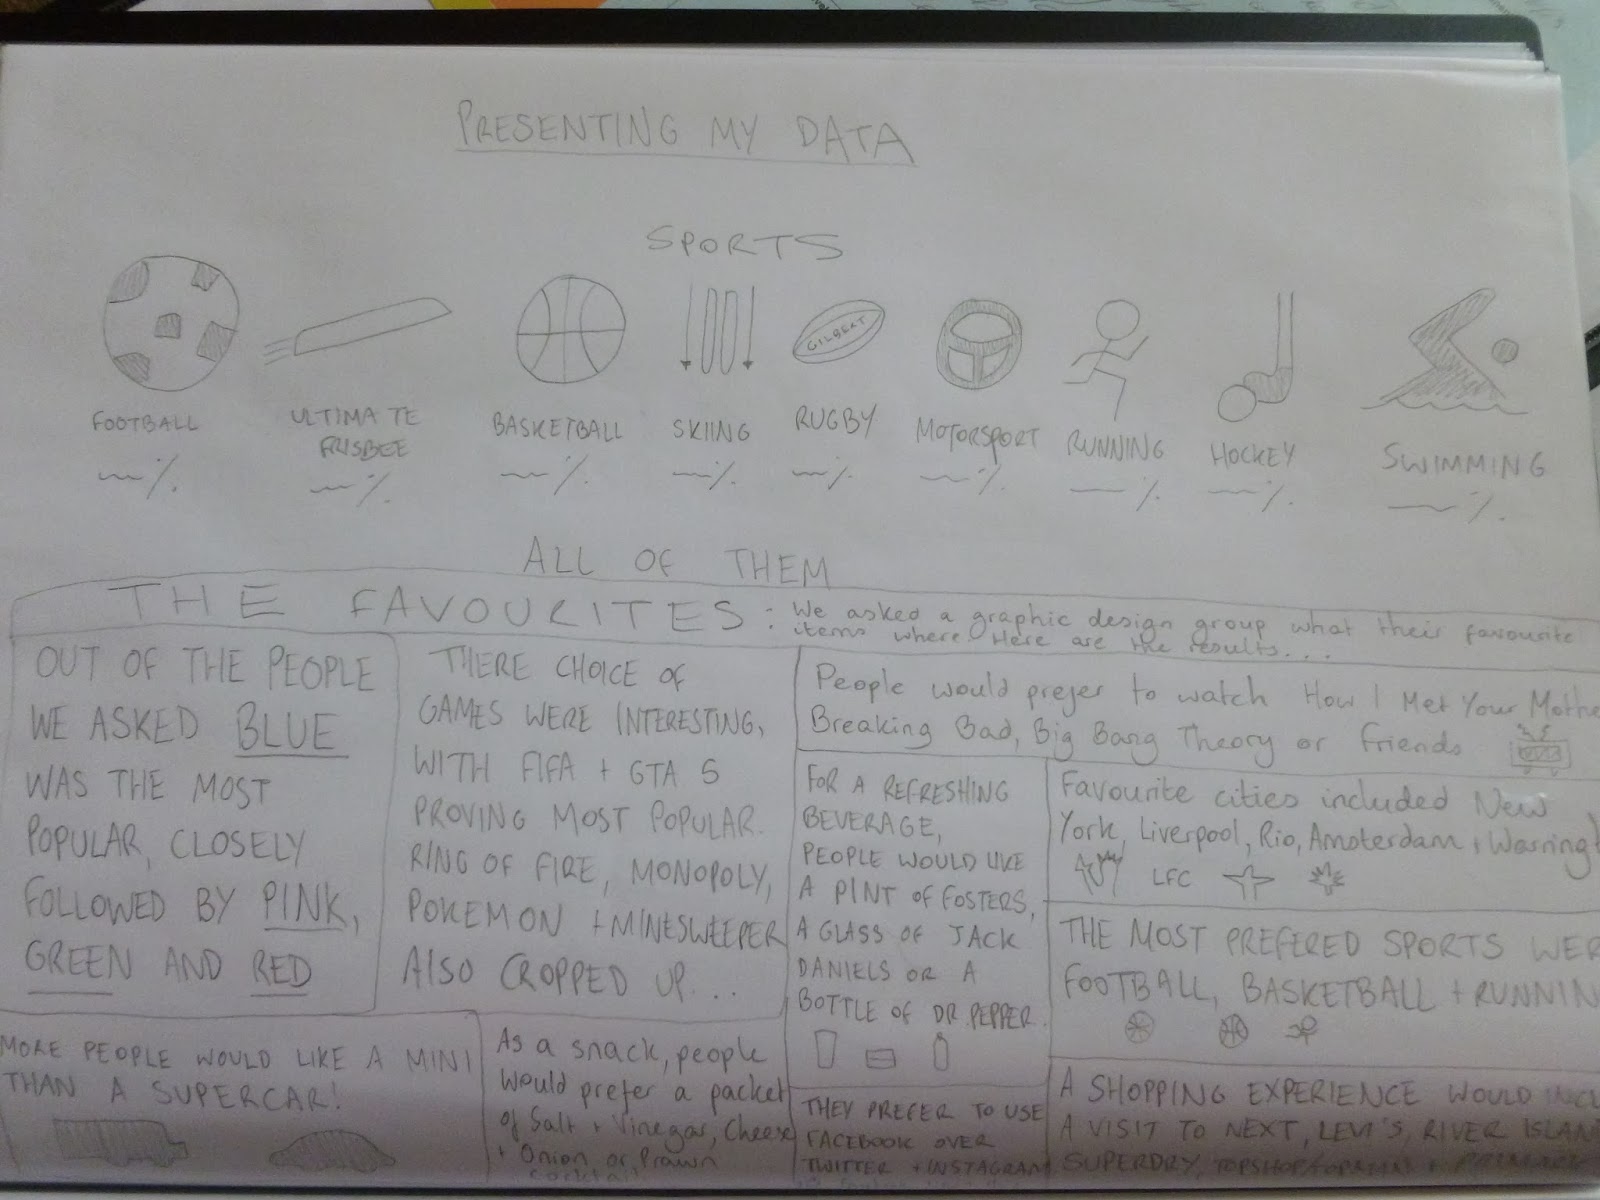 PRESENTING MY DATA
SPORTS
GILBERT
FOOTBALL
ULTIMATE
FRISBEE
BASKETBALL
SKIING
RUGBY
MOTORSPORT
RUNNING
HOCKEY
SWIMMING
%
%
%
%
%
%
%
%
%
ALL OF THEM
THE FAVOURITES: We asked a graphic design group what their favourite
items where. Here are the results...
OUT OF THE PEOPLE
WE ASKED BLUE
WAS THE MOST
POPULAR, CLOSELY
FOLLOWED BY PINK,
GREEN AND RED
THERE CHOICE OF
GAMES WERE INTERESTING,
WITH FIFA + GTA 5
PROVING MOST POPULAR.
RING OF FIRE, MONOPOLY,
POKEMON + MINESWEEPER
ALSO CROPPED UP...
People would prefer to watch How I Met Your Mothe
Breaking Bad, Big Bang Theory or Friends
FOR A REFRESHING
BEVERAGE,
PEOPLE WOULD LIKE
A PINT OF FOSTERS,
A GLASS OF JACK
DANIELS OR A
BOTTLE OF DR PEPPER.
Favourite cities included New
York, Liverpool, Rio, Amsterdam + Warringt
LFC
THE MOST PREFERED SPORTS WER
FOOTBALL, BASKETBALL + RUNNIN
MORE PEOPLE WOULD LIKE A MINI
THAN A SUPERCAR!
As a snack, people
would prefer a packet
of Salt + Vinegar, Cheese
+ Onion or Prawn
cocktail
THEY PREFER TO USE
FACEBOOK OVER
TWITTER + INSTAGRAM
A SHOPPING EXPERIENCE WOULD INCL
A VISIT TO NEXT, LEVI'S, RIVER ISLAN
SUPERDRY, TOPSHOP/TOPMAN +